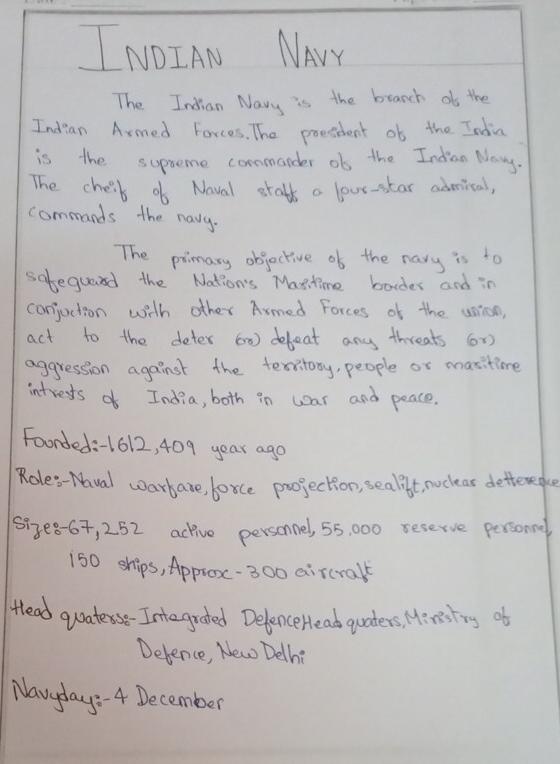 INDIAN NAVY
The Indian Navy is the branch of the
Indian Armed Forces. The president of the India
is the supreme commander of the Indian Navy.
The cheif of Naval staff a four-star admiral,
commands the navy.
The primary objective of the navy is to
safeguard the Nation's Maritime border and in
conjuction with other Armed Forces of the union,
act to the deter (or) defeat any threats (or)
aggression against the territory, people or maritime
intrests of India, both in war and peace.
Founded:-1612, 409 year ago
Role:-Naval warfare, force projection, sealift, nuclear detterence
Size:-67,252 active personnel, 55,000 reserve personnel,
150 ships, Approx-300 aircraft
Head quaters:-Integrated Defence Head quaters, Ministry of
Defence, New Delhi
Navyday:-4 December